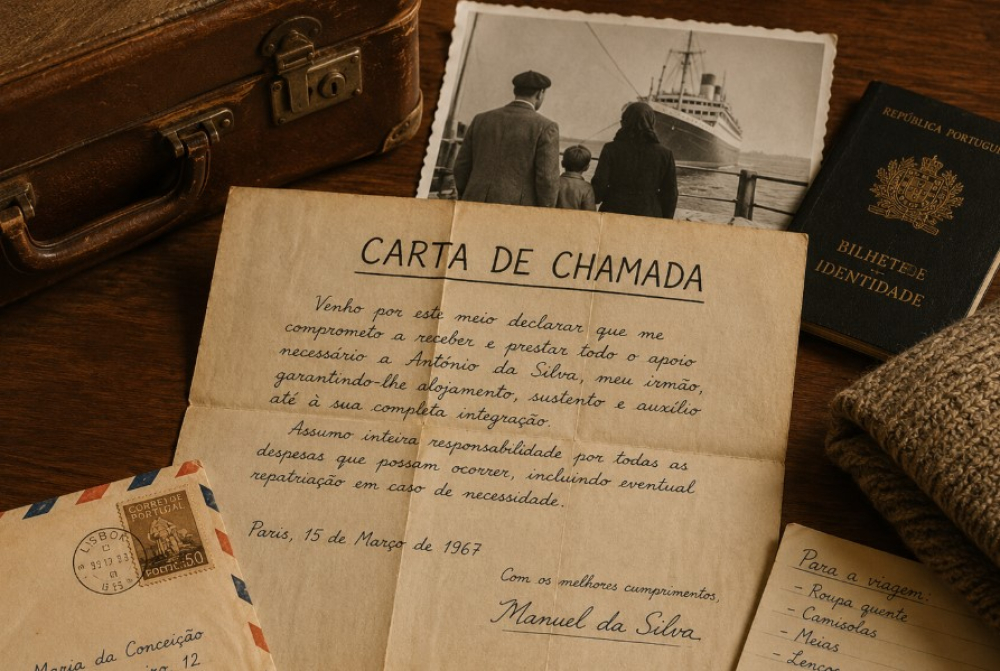 REPÚBLICA PORTUGU
BILHETE DE
IDENTIDADE
CARTA DE CHAMADA
Venho por este meio declarar que me
comprometo a receber e prestar todo o apoio
necessário a António da Silva, meu irmão,
garantindo-lhe alojamento, sustento e auxílio
até à sua completa integração.
Assumo inteira responsabilidade por todas as
despesas que possam ocorrer, incluindo eventual
repatriação em caso de necessidade.
Paris, 15 de Março de 1967
Com os melhores cumprimentos,
Manuel da Silva
CORREIO DE
PORTUGAL
LISBOA
Maria da Conceição
12
Para a viagem:
- Roupa quente
- Camisolas
- Meias
- Lenços